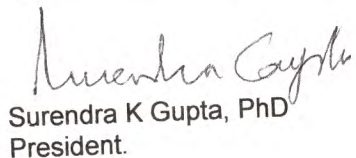 Surendra Gupta
Surendra K Gupta, PhD
President.